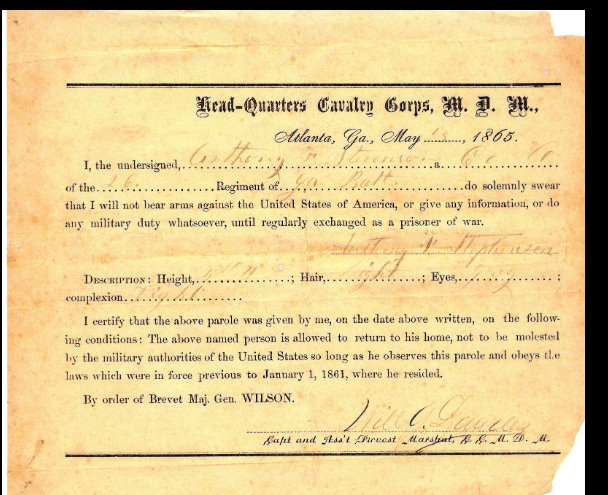 Head-Quarters Cavalry Corps, M. D. M.,
Atlanta, Ga., May 1865.
I, the undersigned, Anthony F. a Co
of the Regiment of Ga Batt do solemnly swear
that I will not bear arms against the United States of America, or give any information, or do
any military duty whatsoever, until regularly exchanged as a prisoner of war.
Anthony F Stephenson
DESCRIPTION: Height, ; Hair, light ; Eyes, ;
complexion
I certify that the above parole was given by me, on the date above written, on the follow-
ing conditions: The above named person is allowed to return to his home, not to be molested
by the military authorities of the United States so long as he observes this parole and obeys the
laws which were in force previous to January 1, 1861, where he resided.
By order of Brevet Maj. Gen. WILSON.
Capt and Ass't Provost Marshal, C. C. M. D. M.